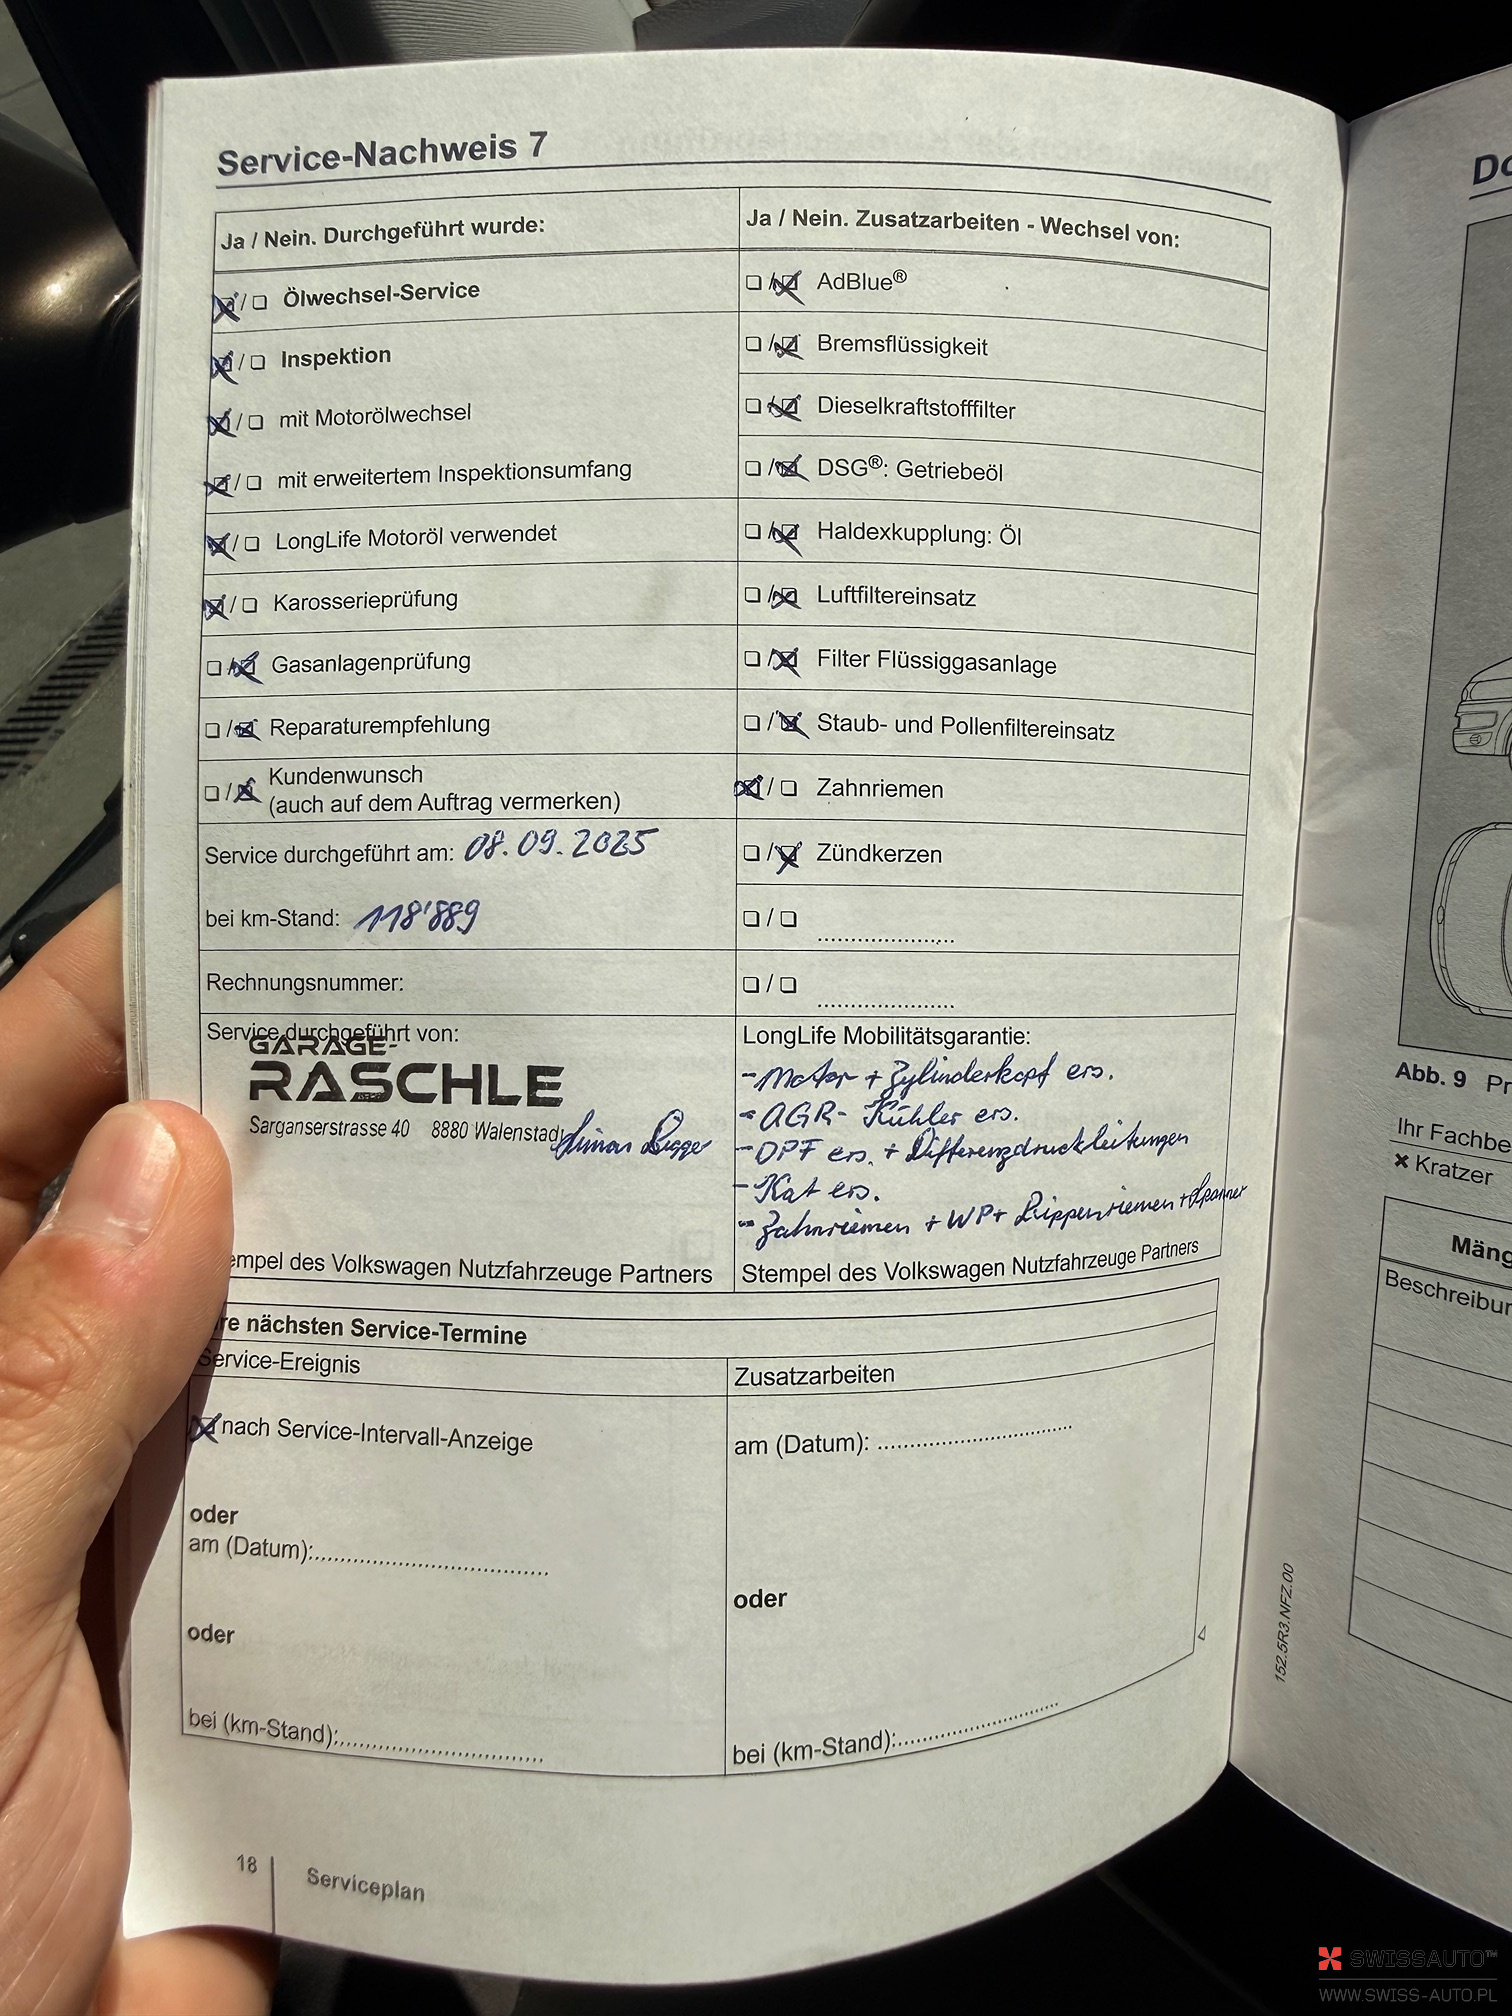 Service-Nachweis 7
Ja / Nein. Durchgeführt wurde:
☒ / ☐ Ölwechsel-Service
☒ / ☐ Inspektion
☒ / ☐ mit Motorölwechsel
☒ / ☐ mit erweitertem Inspektionsumfang
☒ / ☐ LongLife Motoröl verwendet
☒ / ☐ Karosserieprüfung
☐ / ☒ Gasanlagenprüfung
☐ / ☒ Reparaturempfehlung
☐ / ☒ Kundenwunsch
(auch auf dem Auftrag vermerken)
Service durchgeführt am: 08.09.2025
bei km-Stand: 118'889
Rechnungsnummer:
Service durchgeführt von:
GARAGE-
RASCHLE
Sarganserstrasse 40 8880 Walenstadt
empel des Volkswagen Nutzfahrzeuge Partners
Ja / Nein. Zusatzarbeiten - Wechsel von:
☐ / ☒ AdBlue®
☐ / ☒ Bremsflüssigkeit
☐ / ☒ Dieselkraftstofffilter
☐ / ☒ DSG®: Getriebeöl
☐ / ☒ Haldexkupplung: Öl
☐ / ☒ Luftfiltereinsatz
☐ / ☒ Filter Flüssiggasanlage
☐ / ☒ Staub- und Pollenfiltereinsatz
☒ / ☐ Zahnriemen
☐ / ☒ Zündkerzen
☐ / ☐ ......................
☐ / ☐ ......................
LongLife Mobilitätsgarantie:
- Motor + Zylinderkopf ers.
- AGR- Kühler ers.
- DPF ers. + Differenzdruckleitungen
- Kat ers.
- Zahnriemen + WP + Rippenriemen + Spanner
Stempel des Volkswagen Nutzfahrzeuge Partners
re nächsten Service-Termine
Service-Ereignis
☒ nach Service-Intervall-Anzeige
oder
am (Datum):......................
oder
bei (km-Stand):......................
Zusatzarbeiten
am (Datum): ......................
oder
bei (km-Stand):......................
152.5R3.NFZ.00
18 Serviceplan
Do
Abb. 9 Pr
Ihr Fachbe
× Kratzer
Mäng
Beschreibur
SWISSAUTO™
WWW.SWISS-AUTO.PL